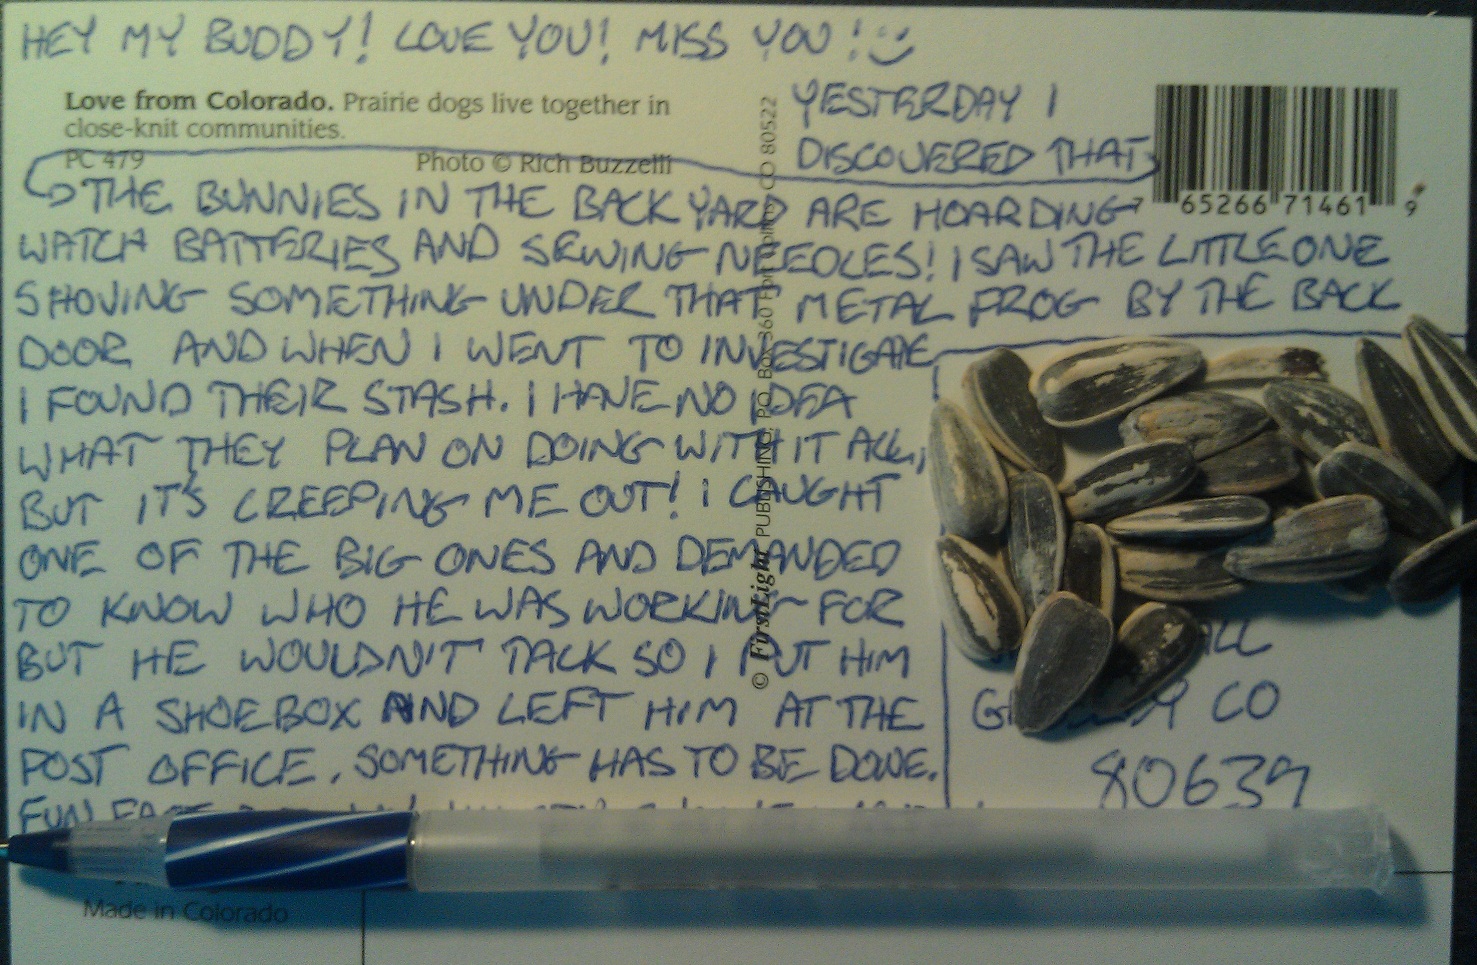 HEY MY BUDDY! LOVE YOU! MISS YOU!
Love from Colorado. Prairie dogs live together in
close-knit communities.
PC 479 Photo © Rich Buzzelli
YESTERDAY I
DISCOVERED THAT
7 65266 71461 9
THE BUNNIES IN THE BACK YARD ARE HOARDING
WATCH BATTERIES AND SEWING NEEDLES! I SAW THE LITTLE ONE
SHOVING SOMETHING UNDER THAT METAL FROG BY THE BACK
DOOR AND WHEN I WENT TO INVESTIGATE
I FOUND THEIR STASH. I HAVE NO IDEA
WHAT THEY PLAN ON DOING WITH IT ALL,
BUT IT'S CREEPING ME OUT! I CAUGHT
ONE OF THE BIG ONES AND DEMANDED
TO KNOW WHO HE WAS WORKING FOR
BUT HE WOULDN'T TALK SO I PUT HIM
IN A SHOEBOX AND LEFT HIM AT THE
POST OFFICE. SOMETHING HAS TO BE DONE.
FUN
© FirstLight PUBLISHING, P.O. Box 360 CO 80522
CO
80639
Made in Colorado